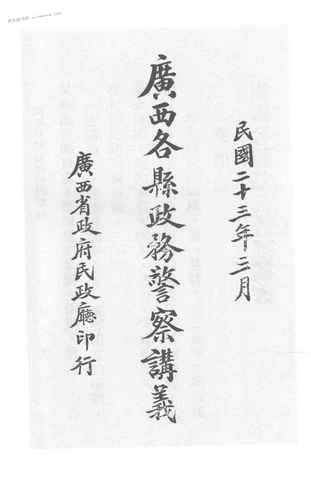 民國二十三年三月
廣西各縣政務警察講義
廣西省政府民政廳印行